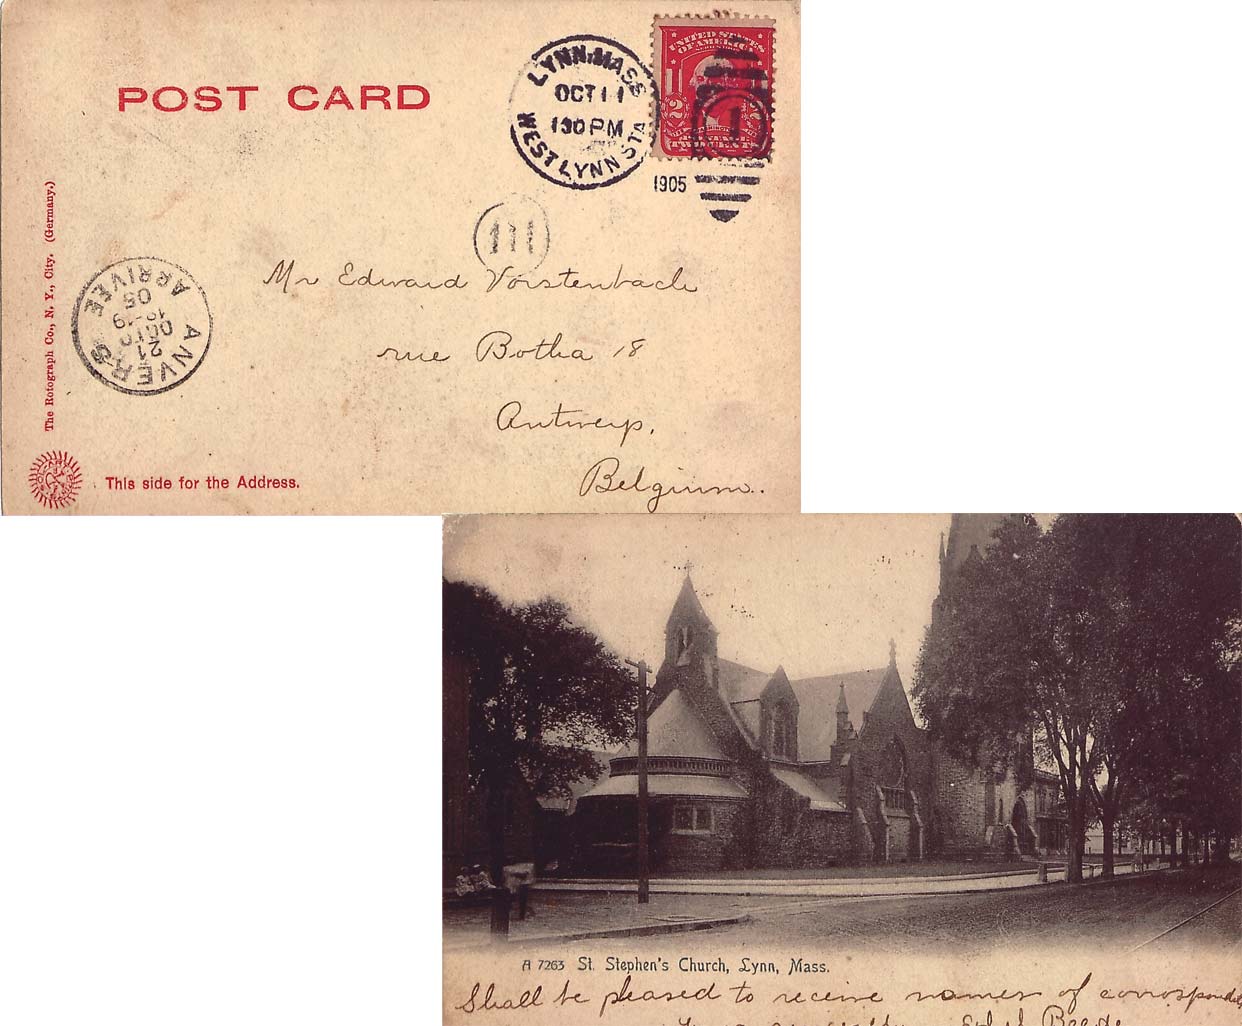 POST CARD
LYNN, MASS
OCT 11
130 PM
WEST LYNN STA
1905
UNITED STATES
OF AMERICA
1
2
The Rotograph Co., N. Y., City. (Germany.)
ANVERS
21
OCTO
05
ARRIVEE
Mr Edward Vorstenbach
rue Botha 18
Antwerp.
Belgium.
This side for the Address.
A 7263 St. Stephen's Church, Lynn, Mass.
Shall be pleased to receive names of